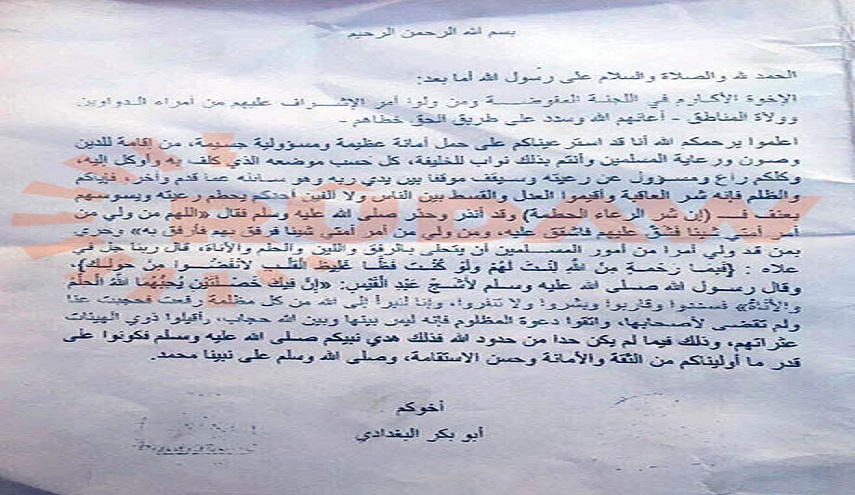 بسم الله الرحمن الرحيم
الحمد لله والصلاة والسلام على رسول الله أما بعد:
الإخوة الأكارم في اللجنة المفوضة ومن ولوا أمر الإشراف عليهم من أمراء الدواوين
وولاة المناطق - أعانهم الله وسدد على طريق الحق خطاهم -
اعلموا يرحمكم الله أنا قد استرعيناكم على حمل أمانة عظيمة ومسؤولية جسيمة، من إقامة للدين
وصون ورعاية المسلمين وأنتم بذلك نواب للخليفة، كل حسب موضعه الذي كلف به وأوكل إليه،
وكلكم راع ومسؤول عن رعيته وسيقف موقفا بين يدي ربه وهو سائله عما قدم وأخر، فإياكم
والظلم فإنه شر العاقبة وأقيموا العدل والقسط بين الناس ولا ألفين أحدكم يحطم رعيته ويسوسهم
بعنف فـ (إن شر الرعاء الحطمة) وقد أنذر وحذر صلى الله عليه وسلم فقال «اللهم من ولي من
أمر أمتي شيئا فشق عليهم فاشقق عليه، ومن ولي من أمر أمتي شيئا فرفق بهم فارفق به» وحري
بمن قد ولي أمرا من أمور المسلمين أن يتحلى بالرفق واللين والحلم والأناة، قال ربنا جل في
علاه : {فَبِمَا رَحْمَةٍ مِنَ اللَّهِ لِنْتَ لَهُمْ وَلَوْ كُنْتَ فَظًّا غَلِيظَ الْقَلْبِ لَانْفَضُّوا مِنْ حَوْلِكَ}،
وقال رسول الله صلى الله عليه وسلم لأَشَجِّ عَبْدِ الْقَيْسِ: «إِنَّ فِيكَ خَصْلَتَيْنِ يُحِبُّهُمَا اللهُ الْحِلْمُ
وَالْأَنَاةُ» فسددوا وقاربوا وبشروا ولا تنفروا، وإنا لنبرأ إلى الله من كل مظلمة رفعت فحجبت عنا
ولم تقضى لأصحابها، واتقوا دعوة المظلوم فإنه ليس بينها وبين الله حجاب، وأقيلوا ذوي الهيئات
عثراتهم، وذلك فيما لم يكن حدا من حدود الله فذلك هدي نبيكم صلى الله عليه وسلم فكونوا على
قدر ما أوليناكم من الثقة والأمانة وحسن الاستقامة، وصلى الله وسلم على نبينا محمد.
أخوكم
أبو بكر البغدادي